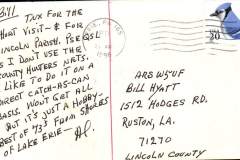 Bill
Tnx for the
short visit - & for
Lincoln Parish. Pse QSL
as I don't use the
County Hunters nets.
I like to do it on a
direct catch-as-can
basis. Won't get all
but it's just a hobby -
Best of 73 from shores
of Lake Erie -
20
ARS W5UF
Bill Hyatt
1512 Hodges Rd.
Ruston, LA.
71270
Lincoln County